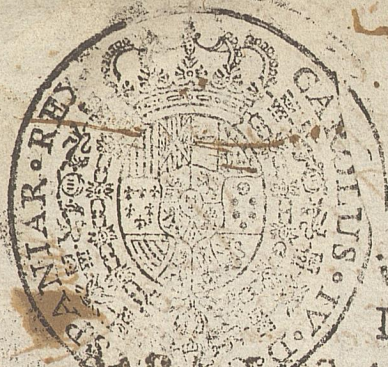 CAROLUS · IV · D
SPANIAR · REX